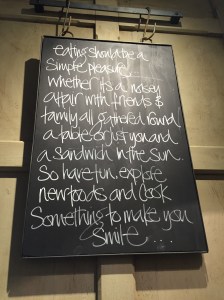 eating should be a
simple pleasure...
whether it's a noisey
affair with friends &
family all gathered round
a table or just you and
a sandwich in the sun.
So have fun, explore
new foods and cook
Something to make you
smile ....